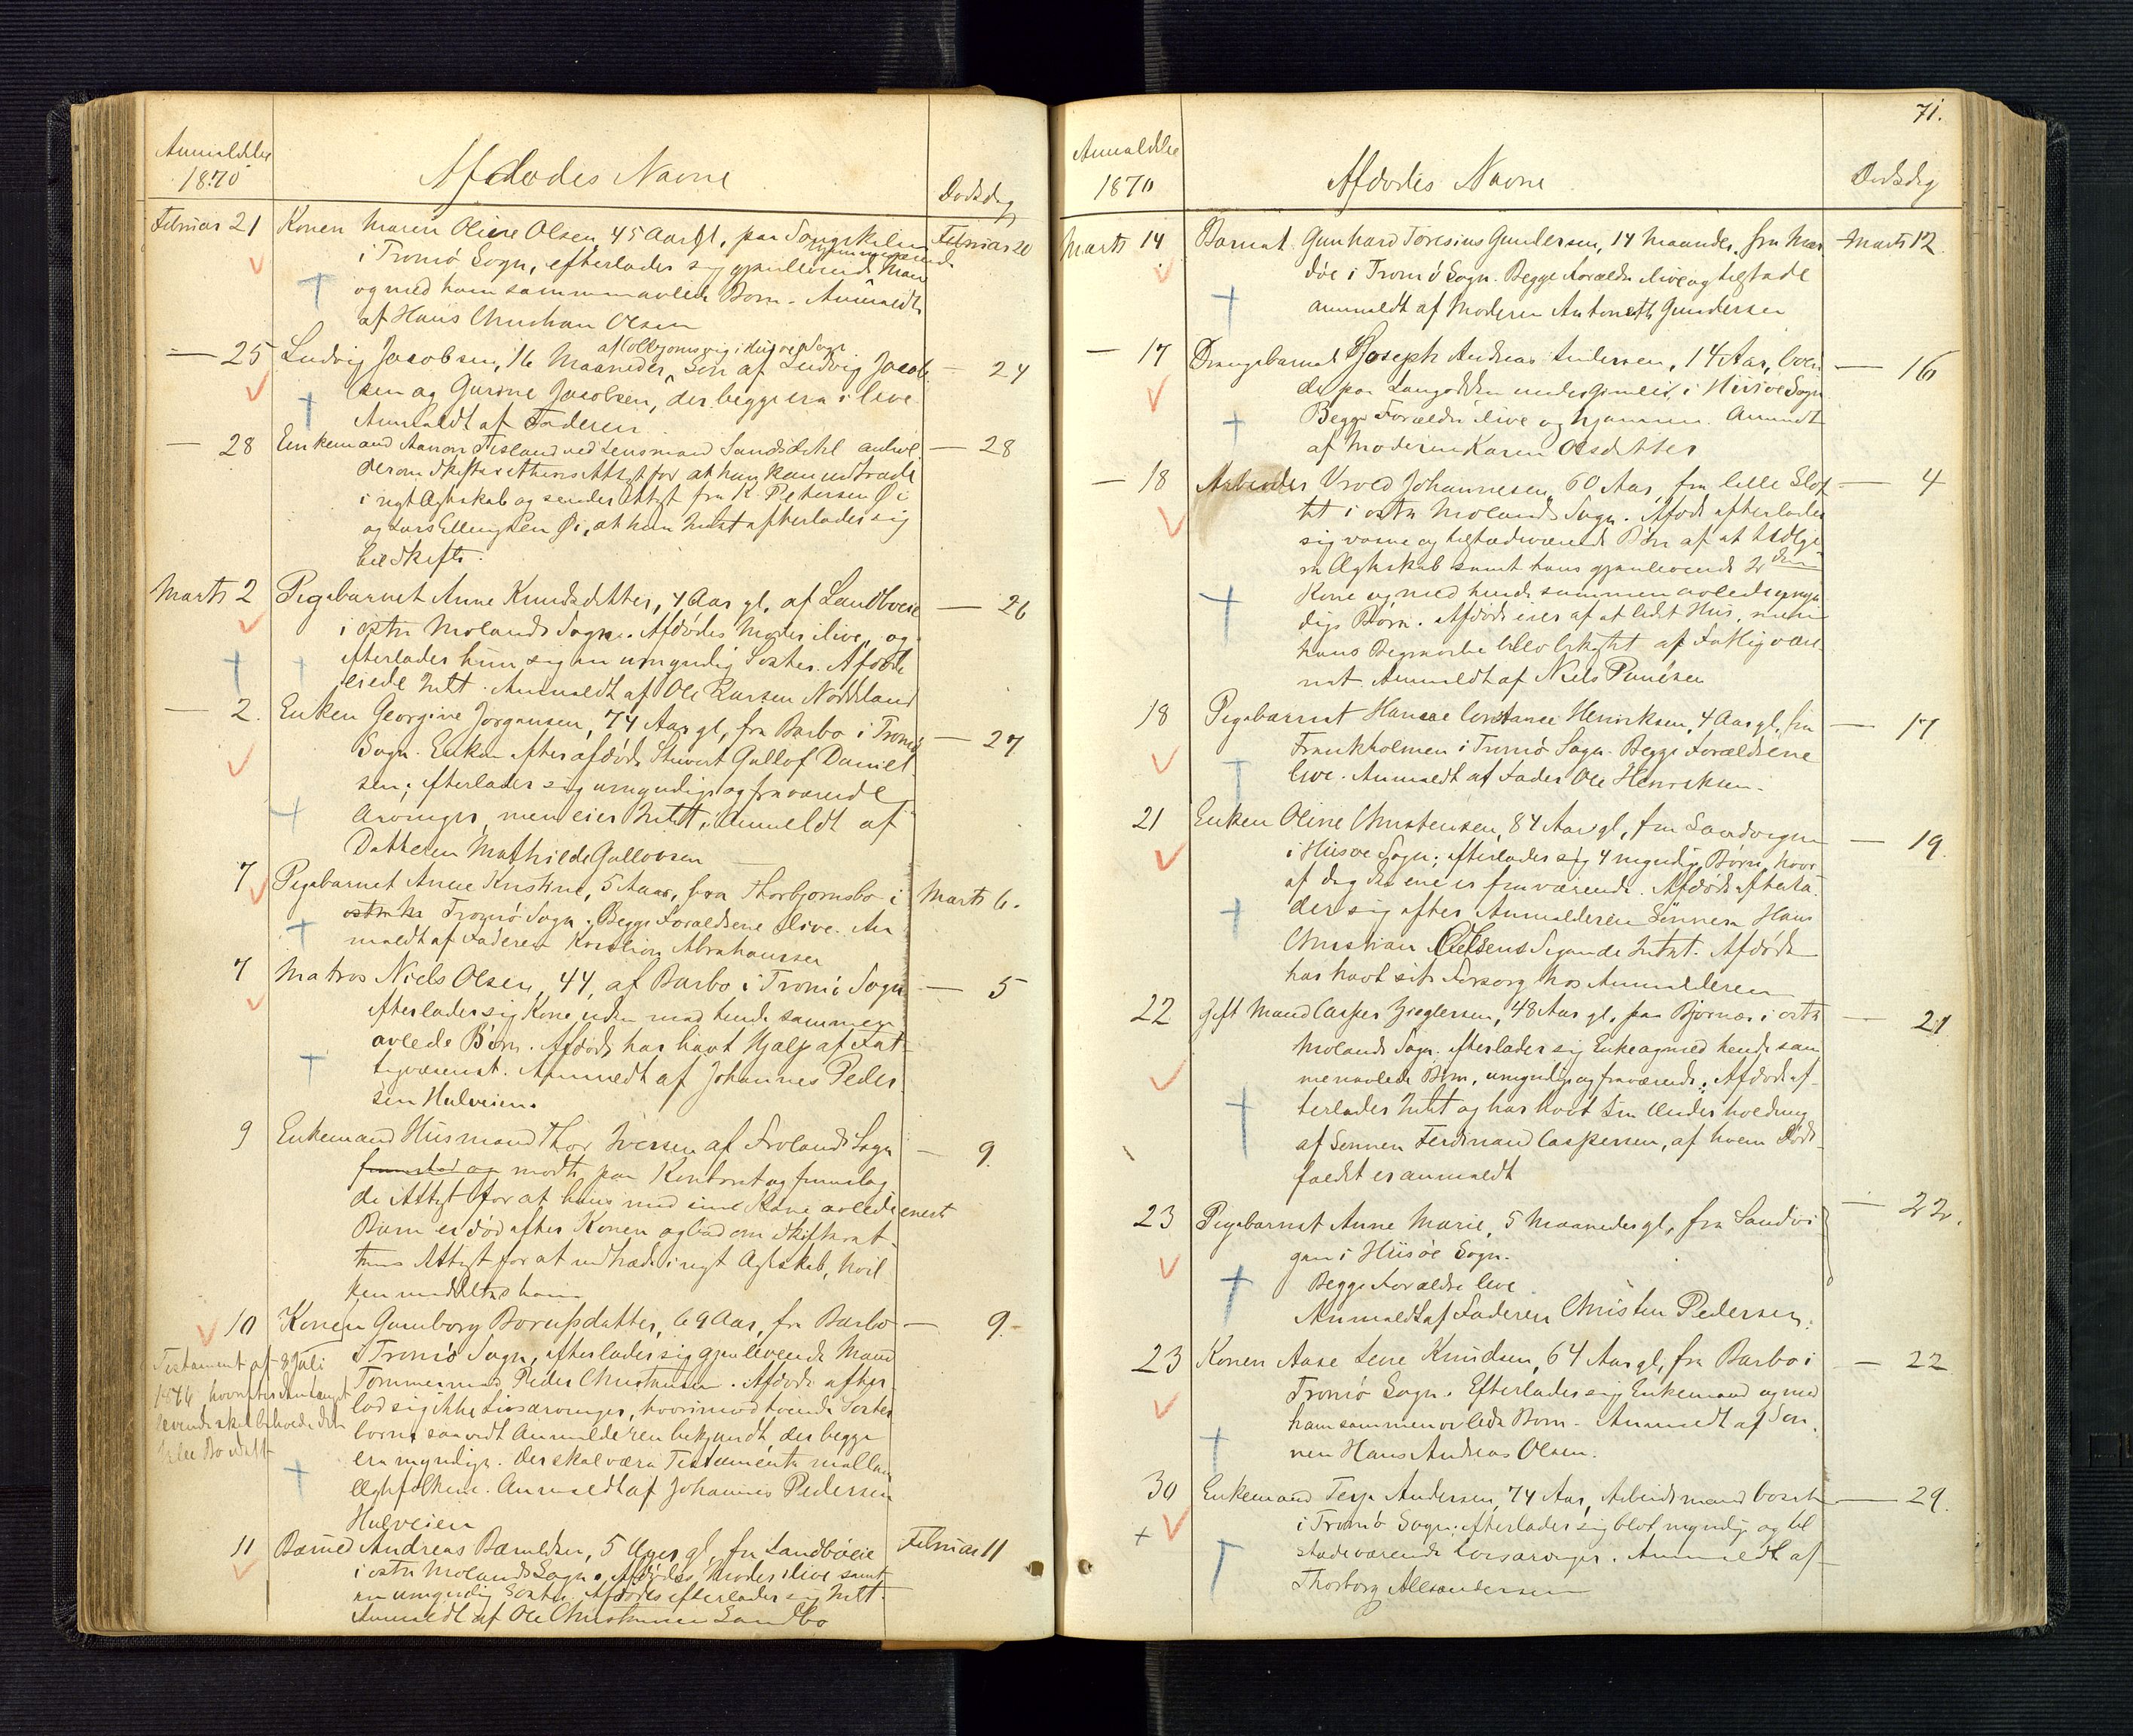 Anmeldelse
1870
Afdødes Navne
Dødsdag
Februar 21 Konen Maren Oline Olsen, 45 Aar gl., paa Songekilen Februar 20
i Tromø Sogn, efterlader sig gjenlevende Mand
og med ham sammenavlede Børn. Anmeldt
af Hans Christian Olsen
af Kolbjørnsvig i Hisøe Sogn
— 25 Ludvig Jacobsen, 16 Maaneder, Søn af Ludvig Jacob- — 24
sen og Gurine Jacobsen, der begge ere i live.
Anmeldt af Faderen
— 28 Enkemand Aanon Fisland ved Lensmand Sandsdahl anhol- — 28
der om Skifterettens Attest for at han kan indtræde
i nyt Ægteskab og sender Attest fra K. Petersen Øi
og Lars Ellingsen Øi, at han Intet efterlader sig
til Skifte.
Marts 2 Pigebarnet Anne Knudsdatter, 4 Aar gl. af Landbøeie — 26
i østre Molands Sogn. Afdødes Moder i live, og
efterlader hun sig en umyndig Søster. Afdøde
eiede Intet. Anmeldt af Ole Larsen Nødeland
— 2. Enken Georgine Jørgensen, 74 Aar gl., fra Barbo i Tromø — 27
Sogn. Enken efter afdøde Stuert Gullof Daniel-
sen; efterlader sig umyndige og fraværende
Arvinger, men eier Intet; Anmeldt af
Datteren Mathilde Gullovsen
7 Pigebarnet Anne Kristine, 5 Aar, fra Thorbjørnsbo i Marts 6.
Tromø Sogn. Begge Forældrene i live. An-
meldt af Faderen Abrahamsen
7 Matros Niels Olsen, 44, af Barbo i Tromø Sogn — 5
Efterlader sig Kone uden med hende sammen
avlede Børn. Afdøde har havt Hjælp af Fat-
tigvæsenet. Anmeldt af Johannes Peder
sen Hulveien.
9 Enkemand Husmand Thor Iversen af Frolands Sogn — 9.
mødte paa Kontoret og fremlag-
de Attest for at hans med sine Kone avlede eneste
Barn er død efter Konen og bad om Skifteret-
tens Attest for at indtræde i nyt Ægteskab, hvil-
ken meddeltes ham
10 Konen Gunborg Borupsdatter, 69 Aar, fra Barbo — 9.
i Tromø Sogn, efterlader sig gjenlevende Mand
Tømmermand Peder Christensen. Afdøde efter-
lod sig ikke Livsarvinger, hvorimod tvende Søster
børn, saavidt Anmelderen bekjendt der begge
ere myndige. Der skal være Testamente mellem
Ægtefolkene. Anmeldt af Johannes Pedersen
Hulveien
Testament af 8 Juli
11 Andreas Bærulsen, 5 Uger gl., fra Landbøeie Februar 11
i østre Molands Sogn. Afdødes Moder i live samt
en umyndig Søster. Afdødes efterlader sig Intet.
Anmeldt af Ole Christensen Landbø
71.
Anmeldelse
1870
Afdødes Navne
Dødsdag
Marts 14 Barnet Gunhard Toresius Gundersen, 14 Maaneder, fra Mær- Marts 12
døe i Tromø Sogn. Begge Forældre ilive og tilstede
anmeldt af Moderen Antonette Gundersen
— 17 Drengebarnet Joseph Andreas Andersen, 14 Aar, boen- — 16
de paa Langodden under Gimle i Hisøe Sogn
Begge Forældre ilive og hjemme. Anmeldt
af Moderen Karen Olsdatter
— 18 Arbeider Vroed Johannesen, 60 Aar, fra lille Slot- — 4
tet i østre Molands Sogn. Afdøde efterlader
sig voxne og tilstedeværende Børn af et tidlige-
re Ægteskab samt hans gjenlevende 2den
Kone og med hende sammenavlede umyn-
dige Børn. Afdøde eier af et lidet Hus, men
hans Begravelse blev bekostet af Fattigvæse-
net. Anmeldt af Niels
18 Pigebarnet Hansine Constance Henriksen, 4 Aar gl., fra — 17
Frankholmen i Tromø Sogn. Begge Forældrene
live. Anmeldt af Fader Ole Henriksen.
21 Enken Oline Christensen, 84 Aar gl., fra Sandvigen — 19.
i Hisøe Sogn; efterlader sig 4 myndige Børn, hvor-
af dog den ene er fraværende. Afdøde efterla-
der sig efter Anmelderen Sønnen Hans
Christian Intet. Afdøde
har havt sit Forsorg hos Anmelderen
22 Gift Mand Casper Zieglersen, 48 Aar gl., paa Bjørnes i østre — 21
Molands Sogn. efterlader sig Enke og med hende sam
menavlede Børn, umyndige og fraværende. Afdøde ef-
terlader Intet og har havt sin Underholdning
af Sønnen Ferdinand Caspersen, af hvem Døds-
faldet er anmeldt
23 Pigebarnet Anne Marie, 5 Maaneder gl., fra Sandvi — 22.
gen i Hisøe Sogn.
Begge Forældre live
Anmeldt af Faderen Christen Pedersen.
23 Konen Aase Lene Knudsen, 64 Aar gl., fra Barbo i — 22
Tromø Sogn. Efterlader sig Enkemand og med
ham sammenavlede Børn. Anmeldt af Søn-
nen Hans Andreas Olsen.
30 Enkemand Terje Andersen, 74 Aar, Arbeidsmand bosat — 29.
i Tromø Sogn; efterlader sig blot myndige og til
stedeværende Livsarvinger. Anmeldt af
Thorborg